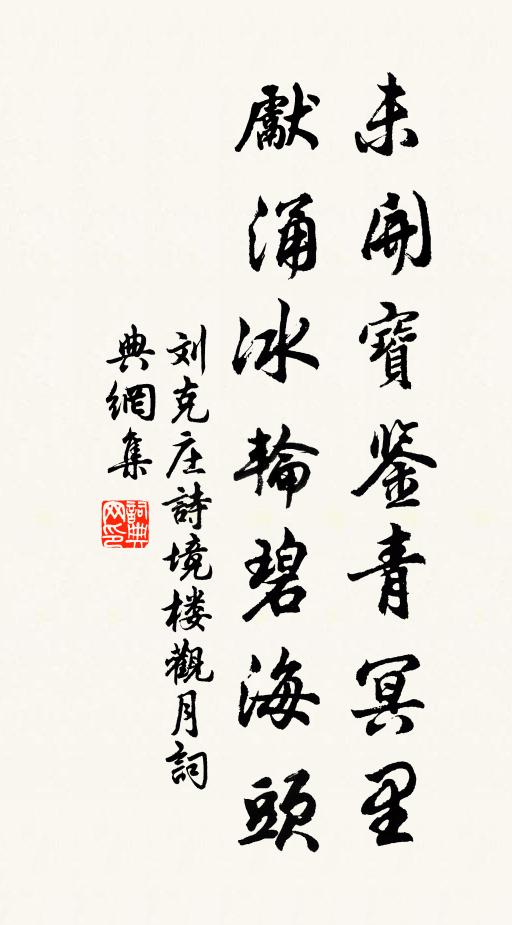 未開寶鑒青冥里
獻涌冰輪碧海頭
刘克庄詩境楼觀月詞
典網集
詞典網印